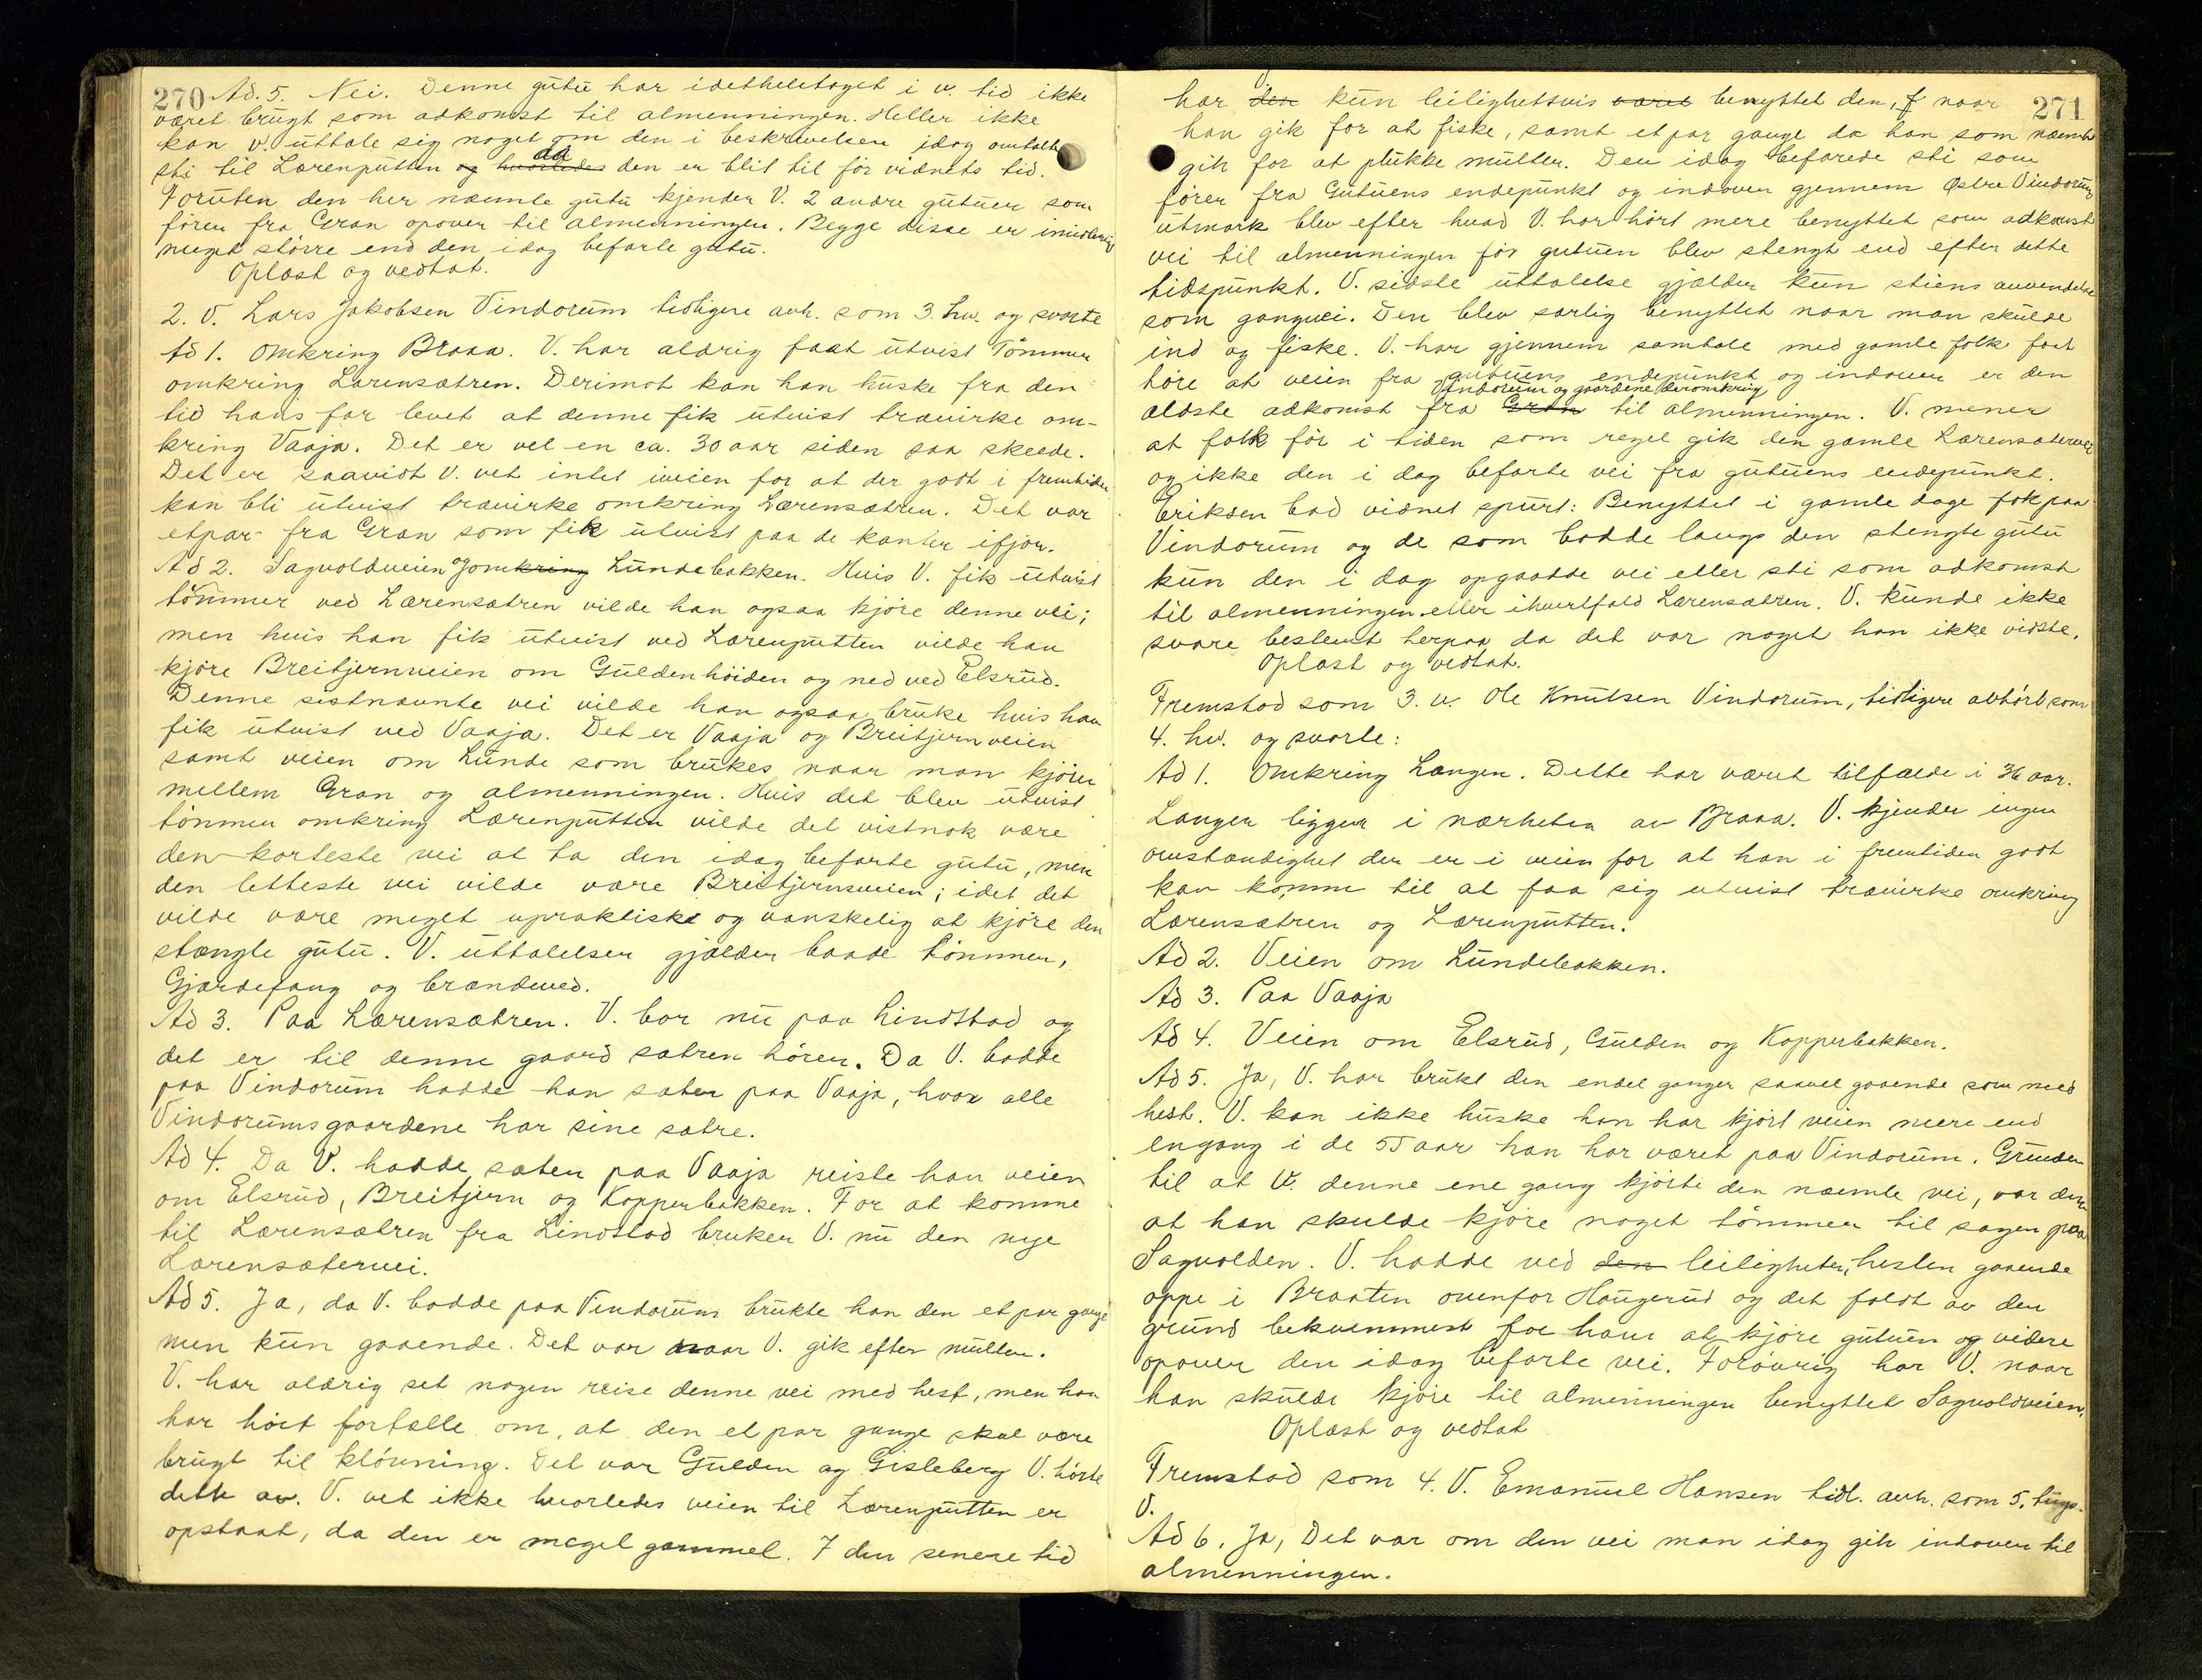 270 Ad. 5. Nei. Denne gutu har idetheletaget i v. tid ikke
været brugt som adkomst til almenningen. Heller ikke
kan v. uttale sig noget om den i beskrivelsen idag omtalte
sti til Lærenputten og hvorledes da den er blit til før vidnets tid.
Foruten den her nævnte gutu kjender V. 2 andre gutuer som
fører fra Gran opover til almenningen. Begge disse er imidlertid
meget større end den idag befarte gutu.
Oplæst og vedtat.
2. V. Lars Jakobsen Vindorum tidligere avh. som 3. hv. og svarte
Ad 1. Omkring Braaa. V. har aldrig faat utvist Tømmer
omkring Lærensætren. Derimot kan han huske fra den
tid hans far levet at denne fik utvist trævirke om-
kring Vaaja. Det er vel en ca. 30 aar siden saa skeede.
Det er saavidt V. vet intet iveien for at der godt i fremtiden
kan bli utvist trævirke omkring Lærensætren. Det var
etpar fra Gran som fik utvist paa de kanter ifjor.
Ad 2. Sagvoldveien og omkring Lundebakken. Hvis V. fik utvist
tømmer ved Lærensætren vilde han ogsaa kjøre denne vei;
men hvis han fik utvist ved Lærenputten vilde han
kjøre Breitjernveien om Guldenhöiden og ned ved Elsrud.
Denne sestnævnte vei vilde han ogsaa bruke hvis han
fik utvist ved Vaaja. Det er Vaaja og Breitjernveien
samt veien om Lunde som brukes naar man kjører
mellem Gran og almenningen. Hvis det blev utvist
tömmer omkring Lærenputten vilde det vistnok være
den korteste vei at ta den idag befarte gutu, men
den letteste vei vilde være Breitjernsveien; idet det
vilde være meget upraktisk og vanskelig at kjøre den
stængte gutu. V. uttalelser gjælder baade tömmer,
Gjærdefang og brændeved.
Ad 3. Paa Lærensætren. V. bor nu paa Lindstad og
det er til denne gaard sætren hører. Da V. bodde
paa Vindorum hadde han sæter paa Vaaja, hvor alle
Vindorumsgaardene har sine sætre.
Ad 4. Da V. hadde sæter paa Vaaja reiste han veien
om Elsrud, Breitjern og Kopperbakken. For at komme
til Lærensætren fra Lindstad bruker V. nu den nye
Lærensætervei.
Ad 5. Ja, da V. bodde paa Vindorum brukte han den et par gange
men kun gaaende. Det var naar V. gik efter multer.
V. har aldrig set nogen reise denne vei med hest, men han
har hört fortælle om, at den et par gange skal være
brugt til klövning. Det var Gulden og Gisleberg V. hørte
dette av. V. vet ikke hvorledes veien til Lærenputten er
opstaat, da den er meget gammel. I den senere tid
271
har den kun leilighetsvis været benyttet den, naar
han gik for at fiske, samt et par gange da han som nævnt
gik for at plukke multer. Den idag befarede sti som
fører fra Gutuens endepunkt og indover gjennem Østre Vindorum
utmark blev efter hvad V. har hört mere benyttet som adkomst
vei til almenningen før gutuen blev stengt end efter dette
tidspunkt. V. sidste uttalelse gjælder kun stiens anvendelse
som gangvei. Den blev særlig benyttet naar man skulde
ind og fiske. V. har gjennem samtale med gamle folk faat
höre at veien fra gutuens endepunkt og indover er den
ældste adkomst fra Gran Vindorum og gaardene deromkring til almenningen. V. mener
at folk før i tiden som regel gik den gamle Lærensætervei
og ikke den i dag befarte vei fra gutuens endepunkt.
Eriksen bad vidnet spurt: Benyttet i gamle dage folk paa
Vindorum og de som bodde langs den stengte gutu
kun den i dag opgaadde vei eller sti som adkomst
til almenningen eller ihvertfald Lærensætren. V. kunde ikke
svare bestemt herpaa da det var noget han ikke vidste.
Oplæst og vedtat.
Fremstod som 3. v. Ole Knutsen Vindorum, tidligere avhört som
4. hv. og svarte:
Ad 1. Omkring Langen. Dette har været tilfælde i 36 aar.
Langen ligger i nærheten av Braaa. V. kjender ingen
omstændighet der er i veien for at han i fremtiden godt
kan komme til at faa sig utvist trævirke omkring
Lærensætren og Lærenputten.
Ad 2. Veien om Lundebakken.
Ad 3. Paa Vaaja
Ad 4. Veien om Elsrud, Gulden og Kopperbakken.
Ad 5. Ja, V. har brukt den endel ganger saavel gaaende som med
hest. V. kan ikke huske han har kjört veien mere end
engang i de 55 aar han har været paa Vindorum. Grunden
til at V. denne ene gang kjörte den nævnte vei, var den
at han skulde kjøre noget tömmer til sagen paa
Sagvolden. V. hadde ved den leiligheten, hesten gaaende
oppe i Braaten ovenfor Haugerud og det faldt av den
grund bekvemmest for ham at kjøre gutuen og videre
opover den idag befarte vei. Forøvrig har V. naar
han skulde kjøre til almenningen benyttet Sagvoldveien.
Oplæst og vedtat
Fremstod som 4. V. Emanuel Hansen tidl. avh. som 5.
V.
Ad 6. Ja, Det var om den vei man idag gik indover til
almenningen.